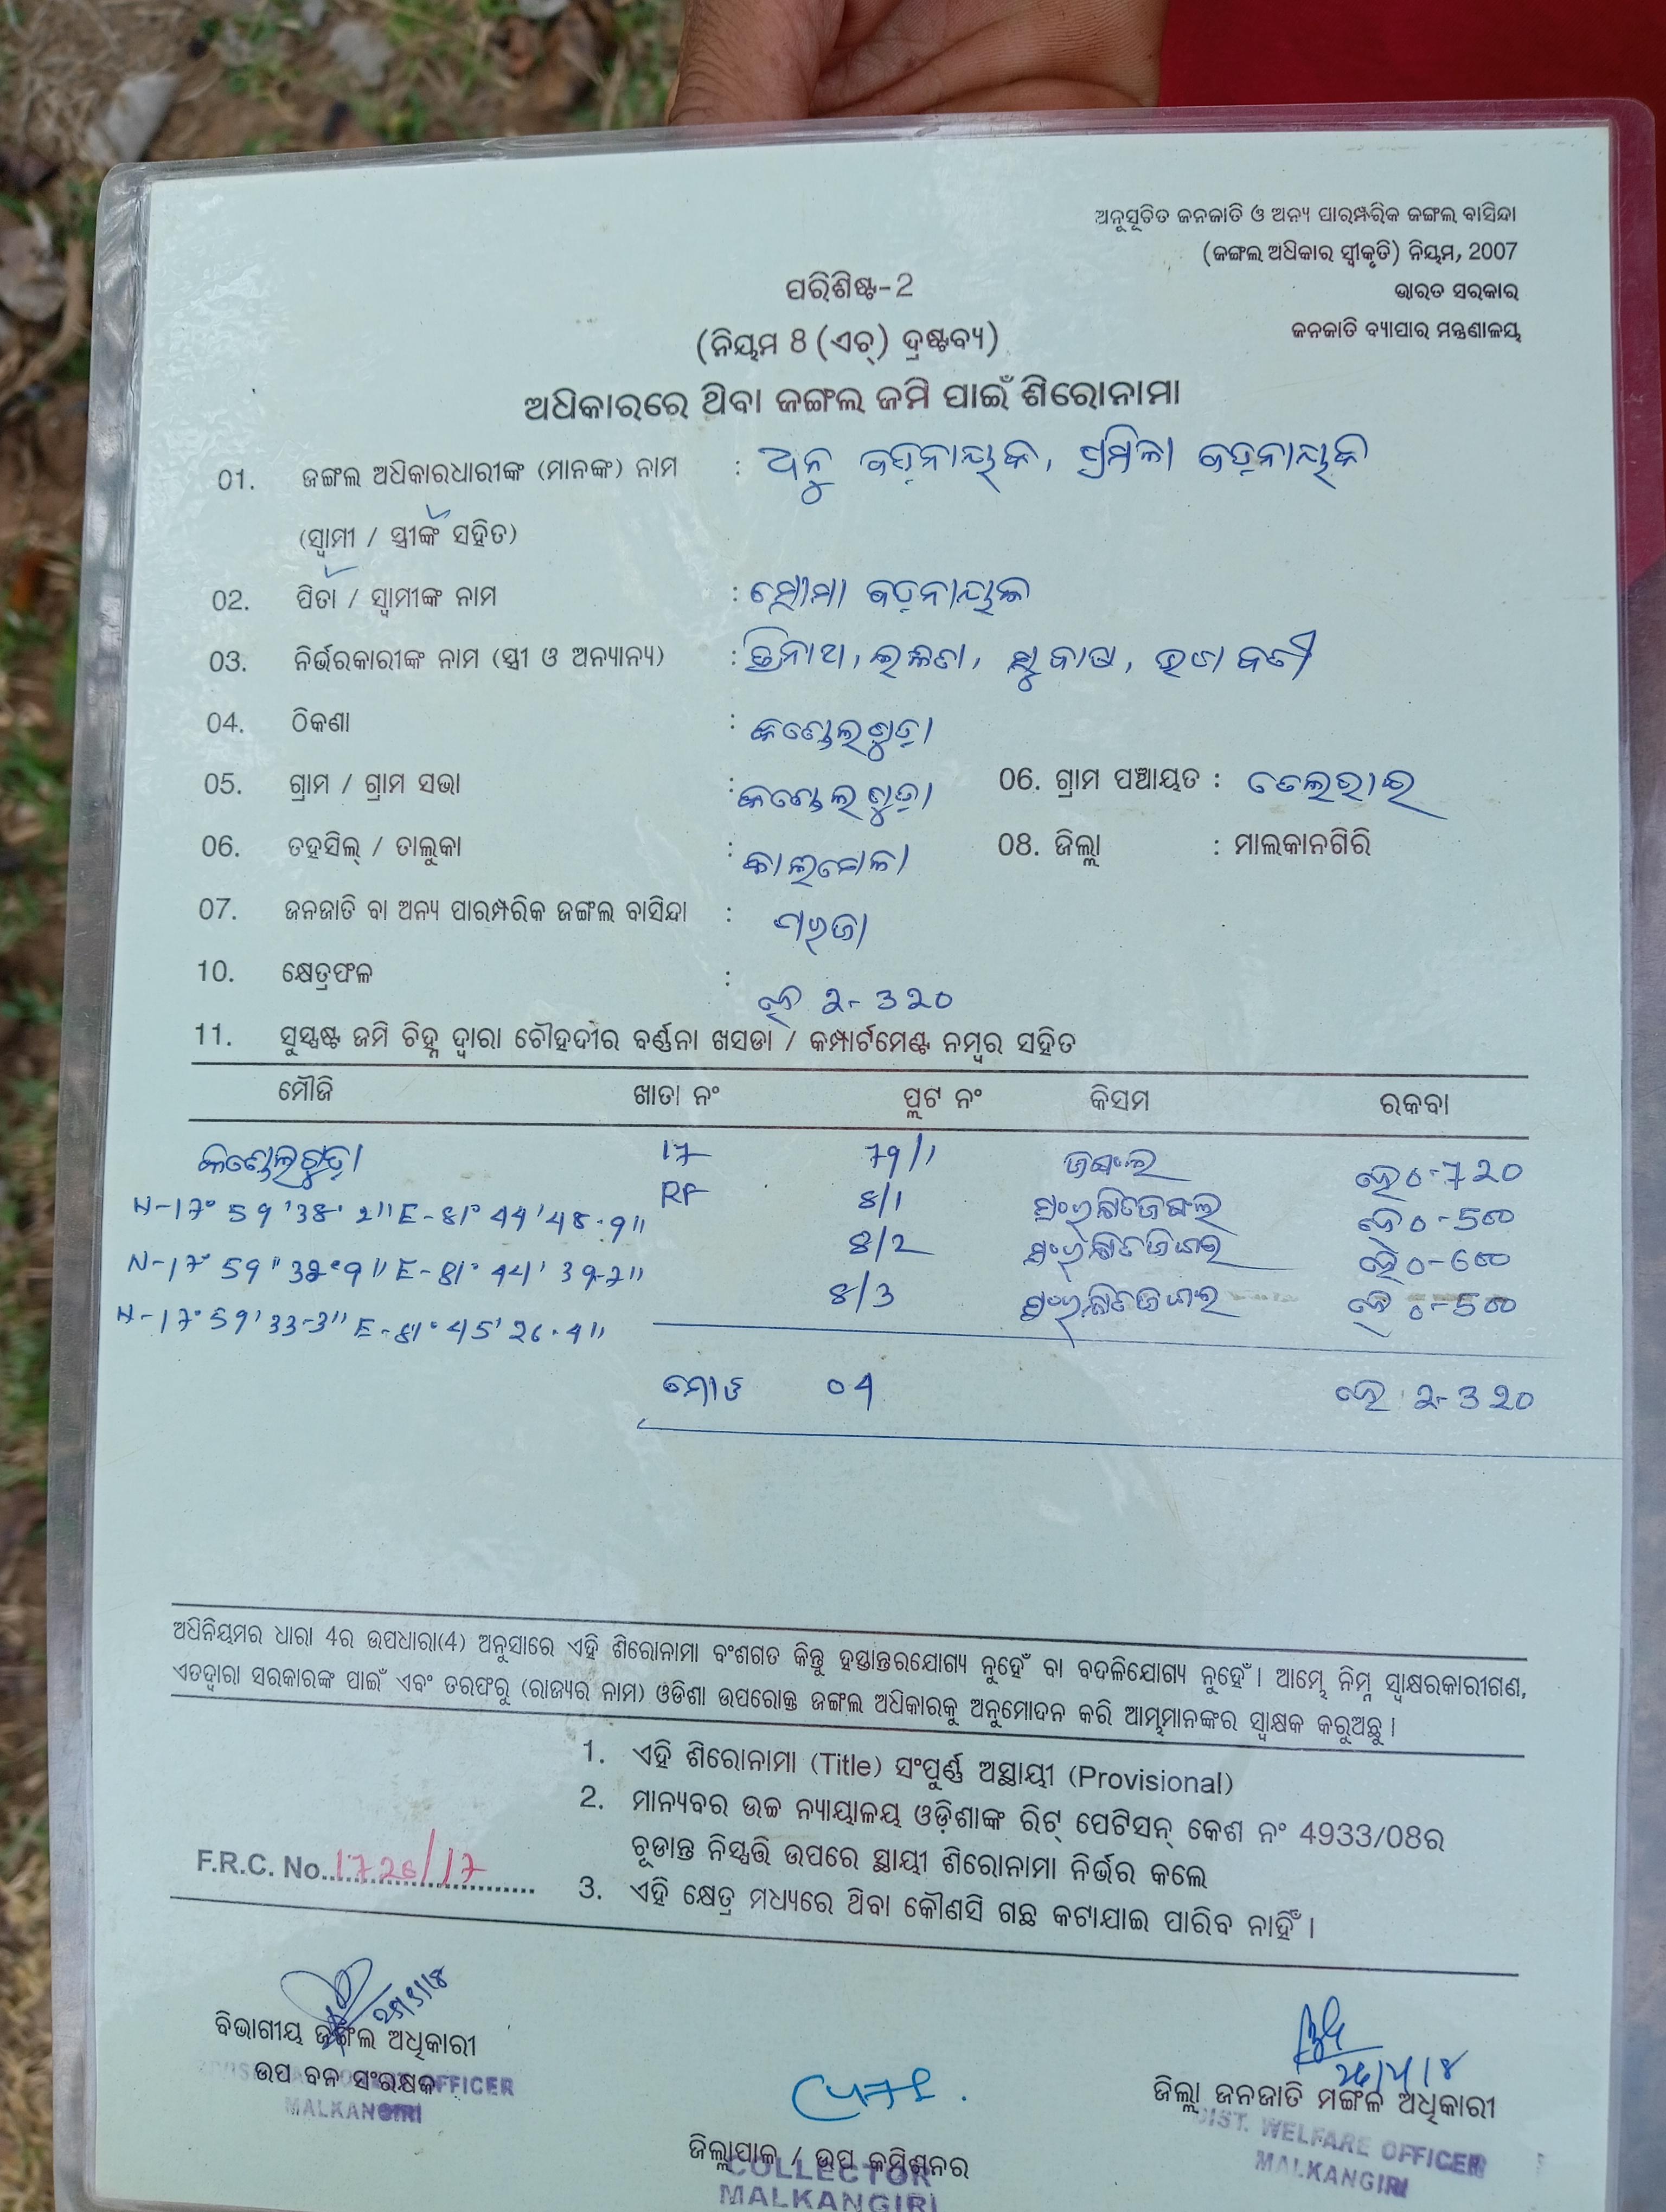 ଅନୁସୂଚିତ ଜନଜାତି ଓ ଅନ୍ୟ ପାରମ୍ପରିକ ଜଙ୍ଗଲ ବାସିନ୍ଦା
(ଜଙ୍ଗଲ ଅଧିକାର ସ୍ୱୀକୃତି) ନିୟମ, 2007
ଭାରତ ସରକାର
ଜନଜାତି ବ୍ୟାପାର ମନ୍ତ୍ରଣାଳୟ
ପରିଶିଷ୍ଟ-2
(ନିୟମ 8 (ଏଚ୍) ଦ୍ରଷ୍ଟବ୍ୟ)
ଅଧିକାରରେ ଥିବା ଜଙ୍ଗଲ ଜମି ପାଇଁ ଶିରୋନାମା
01. ଜଙ୍ଗଲ ଅଧିକାରଧାରୀଙ୍କ (ମାନଙ୍କ) ନାମ : ଅନୁ ବଡ଼ନାୟକ, ପ୍ରମିଳା ବଡ଼ନାୟକ
(ସ୍ୱାମୀ / ସ୍ତ୍ରୀଙ୍କ ସହିତ)
02. ପିତା / ସ୍ୱାମୀଙ୍କ ନାମ : ସୋମା ବଡ଼ନାୟକ
03. ନିର୍ଭରକାରୀଙ୍କ ନାମ (ସ୍ତ୍ରୀ ଓ ଅନ୍ୟାନ୍ୟ) : ତ୍ରିନାଥ, ଭଗବତୀ
04. ଠିକଣା : କଣ୍ଟେଲଗୁଡ଼ା
05. ଗ୍ରାମ / ଗ୍ରାମ ସଭା : କଣ୍ଟେଲଗୁଡ଼ା 06. ଗ୍ରାମ ପଞ୍ଚାୟତ : ତେଲରାଇ
06. ତହସିଲ୍ / ତାଲୁକା : କାଲିମେଳା 08. ଜିଲ୍ଲା : ମାଲକାନଗିରି
07. ଜନଜାତି ବା ଅନ୍ୟ ପାରମ୍ପରିକ ଜଙ୍ଗଲ ବାସିନ୍ଦା : ପରଜା
10. କ୍ଷେତ୍ରଫଳ : ହେ 2-320
11. ସୁସ୍ପଷ୍ଟ ଜମି ଚିହ୍ନ ଦ୍ୱାରା ଚୌହଦୀର ବର୍ଣ୍ଣନା ଖସଡା / କମ୍ପାର୍ଟମେଣ୍ଟ ନମ୍ବର ସହିତ
ମୌଜି ଖାତା ନଂ ପ୍ଲଟ ନଂ କିସମ ରକବା
କଣ୍ଟେଲଗୁଡ଼ା 17 79/1 ଜଙ୍ଗଲ ହେ 0-720
N-17° 59 '38. 2" E-81° 44 '48.9" RF 8/1 ହେ 0-500
N-17° 59" 32.9" E-81° 44' 39-2" 8/2 ହେ 0-600
N-17° 59' 33-3" E-81° 45' 26.4" 8/3 ହେ 0-500
ମୋଟ 04 ହେ 2-320
ଅଧିନିୟମର ଧାରା 4ର ଉପଧାରା(4) ଅନୁସାରେ ଏହି ଶିରୋନାମା ବଂଶଗତ କିନ୍ତୁ ହସ୍ତାନ୍ତରଯୋଗ୍ୟ ନୁହେଁ ବା ବଦଳିଯୋଗ୍ୟ ନୁହେଁ । ଆମ୍ଭେ ନିମ୍ନ ସ୍ୱାକ୍ଷରକାରୀଗଣ,
ଏତଦ୍ୱାରା ସରକାରଙ୍କ ପାଇଁ ଏବଂ ତରଫରୁ (ରାଜ୍ୟର ନାମ) ଓଡିଶା ଉପରୋକ୍ତ ଜଙ୍ଗଲ ଅଧିକାରକୁ ଅନୁମୋଦନ କରି ଆମ୍ଭମାନଙ୍କର ସ୍ୱାକ୍ଷକ କରୁଅଛୁ ।
1. ଏହି ଶିରୋନାମା (Title) ସଂପୁର୍ଣ୍ଣ ଅସ୍ଥାୟୀ (Provisional)
2. ମାନ୍ୟବର ଉଚ୍ଚ ନ୍ୟାୟାଳୟ ଓଡ଼ିଶାଙ୍କ ରିଟ୍ ପେଟିସନ୍ କେଶ ନଂ 4933/08ର
ଚୂଡାନ୍ତ ନିସ୍ପତ୍ତି ଉପରେ ସ୍ଥାୟୀ ଶିରୋନାମା ନିର୍ଭର କଲେ
F.R.C. No. 1726/17
3. ଏହି କ୍ଷେତ୍ର ମଧ୍ୟରେ ଥିବା କୌଣସି ଗଛ କଟାଯାଇ ପାରିବ ନାହିଁ ।
ବିଭାଗୀୟ ଜଙ୍ଗଲ ଅଧିକାରୀ
ଉପ ବନ ସଂରକ୍ଷକ
OFFICER
MALKANGIRI
ଜିଲ୍ଲା ଜନଜାତି ମଙ୍ଗଳ ଅଧିକାରୀ
DIST. WELFARE OFFICER
MALKANGIRI
ଜିଲ୍ଲାପାଳ / ଉପ କମିଶ୍ନର
COLLECTOR
MALKANGIRI